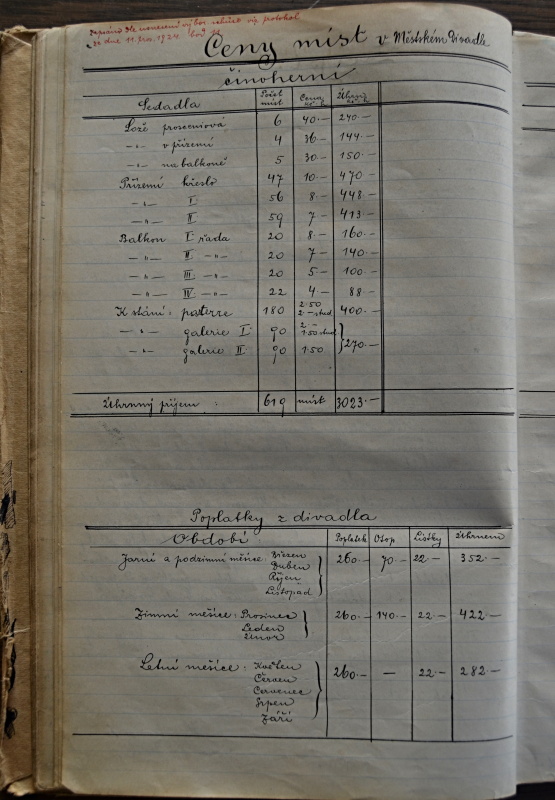 Zapsáno dle usnesení výbor. schůze viz protokol
ze dne 11. pro. 1924 bod 11.
Ceny míst v Městském divadle
činoherní
Sedadla Počet míst Cena Kč h Úhrn Kč h
Lože prosceniová 6 40·— 240·—
—„— v přízemí 4 36·— 144·—
—„— na balkoně 5 30·— 150·—
Přízemí křeslo 47 10·— 470·—
—„— I 56 8·— 448·—
—„— II 59 7·— 413·—
Balkon I řada 20 8·— 160·—
—„— II —„— 20 7·— 140·—
—„— III —„— 20 5·— 100·—
—„— IV —„— 22 4·— 88·—
K stání: paterre 180 2·50 2·— stud 400·—
—„— galerie I 90 2·— 1·50 stud
—„— galerie II 90 1·50 270·—
Úhrnný příjem : 619 míst 3023·—
Poplatky z divadla
Období Poplatek Otop Lístky Úhrnem
Jarní a podzimní měsíce: Březen 260·— 70·— 22·— 352·—
Duben
Říjen
Listopad
Zimní měsíce: Prosinec 260·— 140·— 22·— 422·—
Leden
Únor
Letní měsíce: Květen 260·— — 22·— 282·—
Červen
Červenec
Srpen
Září